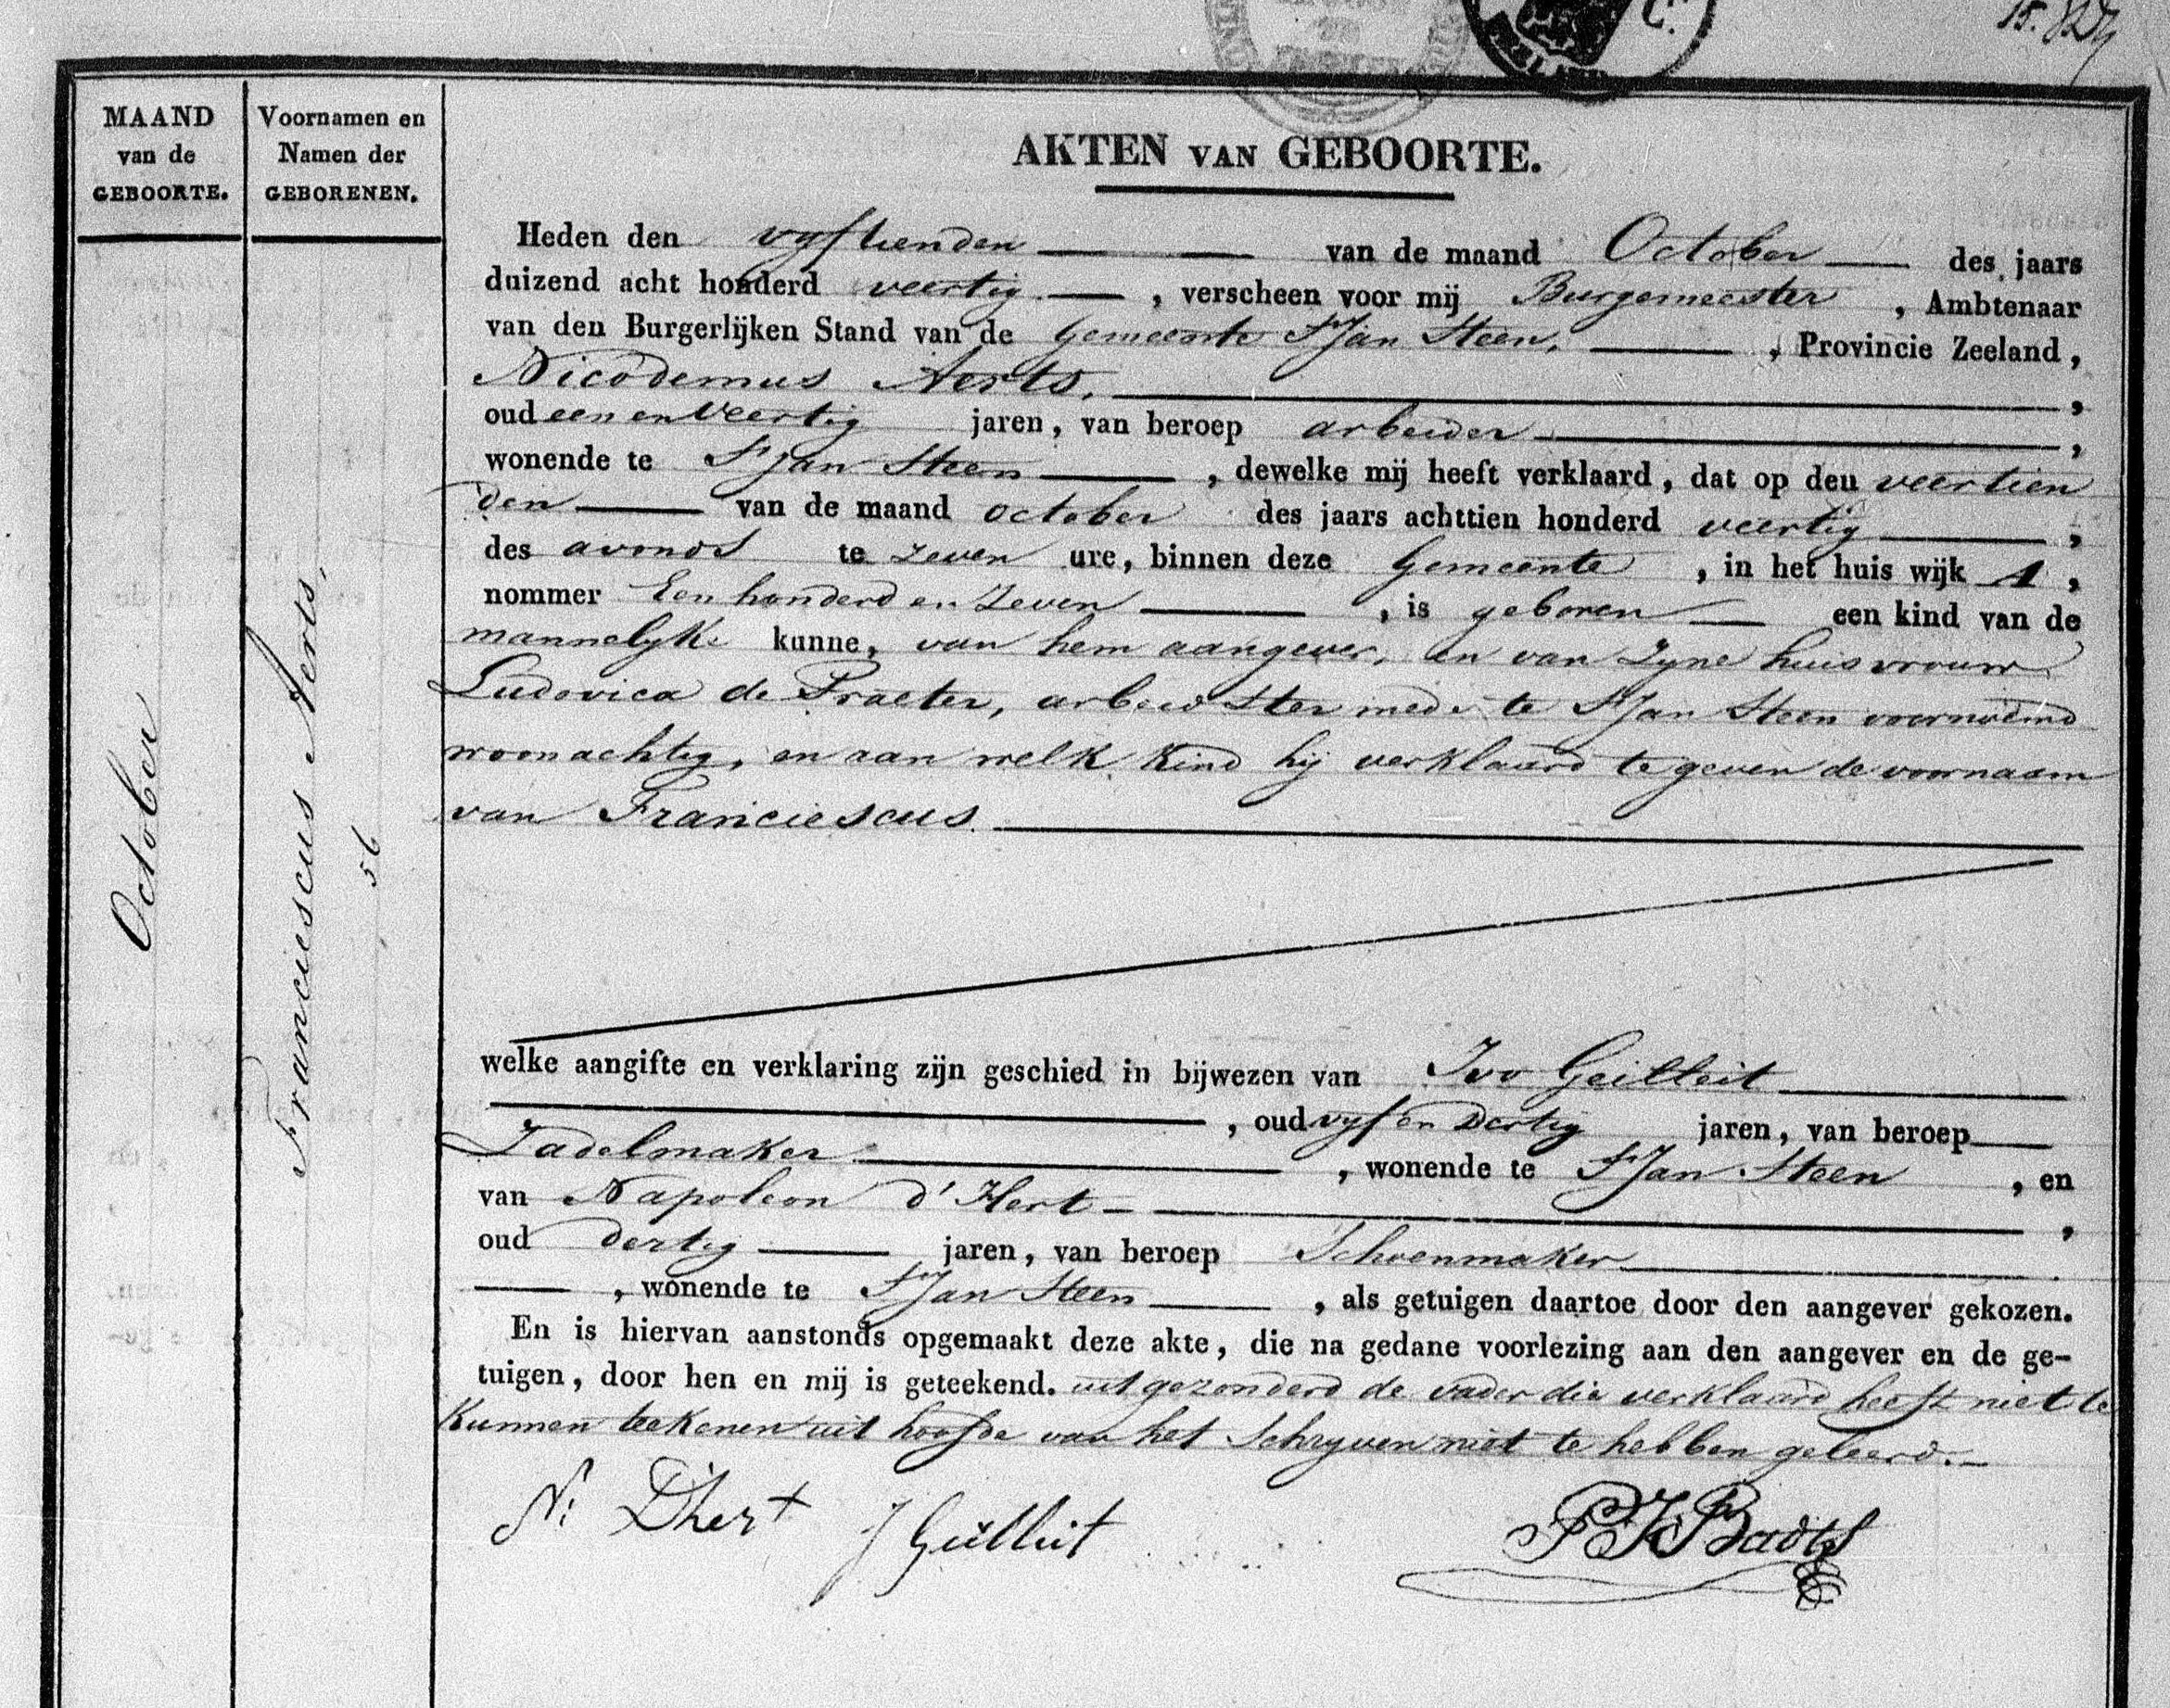 MAAND
van de
GEBOORTE.
Voornamen en
Namen der
GEBORENEN.
October
Franciescus Aerts,
56
AKTEN VAN GEBOORTE.
Heden den vyftienden van de maand October des jaars
duizend acht honderd veertig , verscheen voor mij Burgemeester , Ambtenaar
van den Burgerlijken Stand van de Gemeente St Jan Steen, , Provincie Zeeland,
Nicodemus Aerts, ,
oud een en Veertig jaren, van beroep arbeider ,
wonende te St Jan Steen , dewelke mij heeft verklaard, dat op den veertien
den van de maand october des jaars achttien honderd veertig ,
des avonds te zeven ure, binnen deze Gemeente , in het huis wijk A ,
nommer Een honderd en Zeven , is geboren een kind van de
mannelyke kunne, van hem aangever, en van Zyne huisvrouw
Ludovica de Praeter, arbeidster mede te St Jan Steen voornoemd
woonachtig, en aan welk Kind hij verklaard te geven de voornaam
van Franciescus.
welke aangifte en verklaring zijn geschied in bijwezen van Ivo Geilleit
, oud vyf en Dertig jaren, van beroep
Zadelmaker , wonende te St Jan Steen , en
van Napoleon d'Hert ,
oud dertig jaren, van beroep Schoenmaker
, wonende te St Jan Steen , als getuigen daartoe door den aangever gekozen.
En is hiervan aanstonds opgemaakt deze akte, die na gedane voorlezing aan den aangever en de ge-
tuigen, door hen en mij is geteekend. uitgezonderd de vader die verklaard heeft niet te
Kunnen teekenen uit hoofde van het Schryven niet te hebben geleerd.
N: Dhert J Geilleit P J Badts